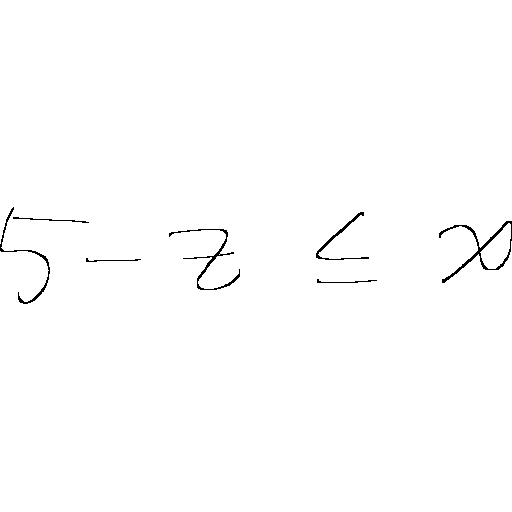 5 - z ≤ x